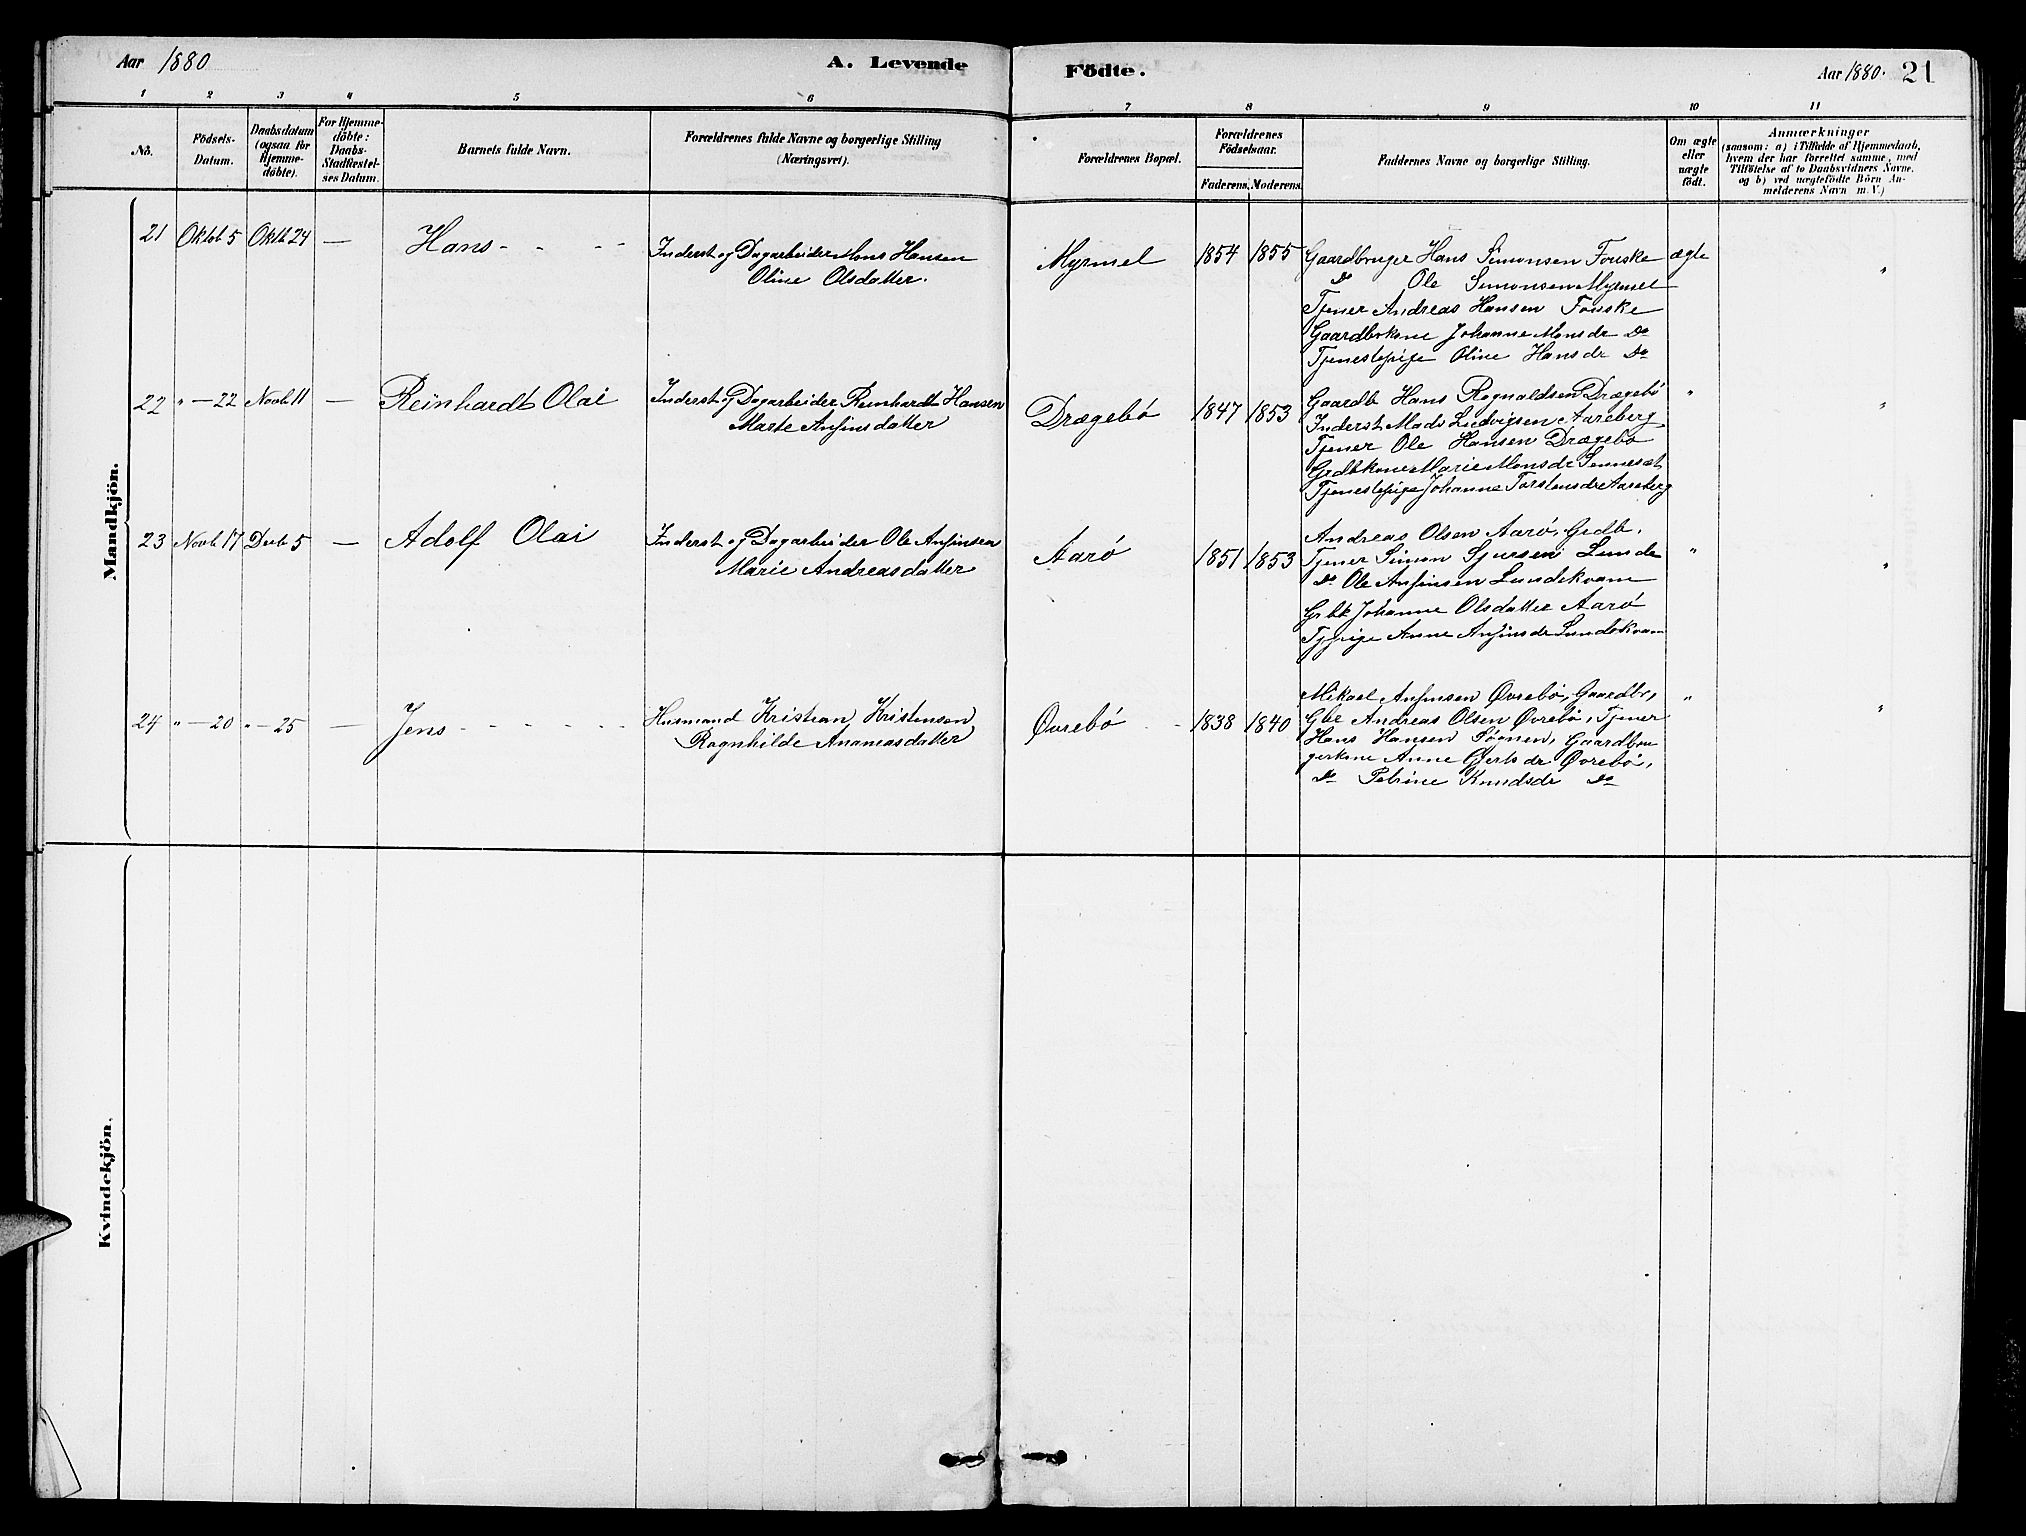 Aar 1880
A. Levende
Födte.
Aar 1880. 21
1 2 3 4 5 6 7 8 9 10 11
No.
Födsels-
Datum.
Daabsdatum
(ogsaa for
Hjemme-
döbte).
For Hjemme-
döbte:
Daabs-
Stadfæstel-
ses Datum.
Barnets fulde Navn.
Forældrenes fulde Navne og borgerlige Stilling
(Næringsvei).
Forældrenes Bopæl.
Forældrenes
Födselsaar.
Faderens. Moderens.
Faddernes Navne og borgerlige Stilling.
Om ægte
eller
uægte
födt.
Anmærkninger
(saasom: a) i Tilfælde af Hjemmedaab,
hvem der har forrettet samme, med
Tilföielse af to Daabsvidners Navne,
og b) ved uægtefödte Börn An-
melderens Navn m. V.)
Mandkjön.
21 Oktob 5 Oktb 24 — Hans - - - -
Inderst og Dagarbeider Mons Hansen
Oline Olsdatter.
Myrmel 1854 1855
Gaardbruger Hans Simonsen Fouske
Do Ole Simonsen Myrmel
Tjener Andreas Hansen Fouske
Gaardbrkone Johanne Monsdr Do
Tjenestepige Oline Hansdr Do
ægte "
22 " — 22 Novb 11 — Reinhardt Olai
Inderst og Dagarbeider Reinhardt Hansen
Marte Ansinsdatter
Drægebø 1847 1853
Gaardb Hans Rognaldsen Drægebø
Inderst Mads Ludvigsen Aareberg
Tjener Ole Hansen Drægebø
Grdbkone Marie Monsdr Sennesæt
Tjenestepige Johanne Torstensdr Aareberg
" "
23 Novb 17 Decb 5 — Adolf Olai
Inderst og Dagarbeider Ole Ansinsen
Marie Andreasdatter
Aarø 1851 1853
Andreas Olsen Aarø, Grdb.
Tjener Simon Sjursen Lunde
Do Ole Ansinsen Lundekvam
Grbk Johanne Olsdatter Aarø
Tjpige Anne Ansinsdr Lundekvam
" "
24 " — 20 " — 25 — Jens - - - - - -
Husmand Kristian Kristensen
Ragnhilde Ananiasdatter
Øvrebø - - 1838 1840
Mikael Ansinsen Øvrebø, Gaardbr,
Gbr Andreas Olsen Øvrebø, Tjener
Hans Hansen Søgnen, Gaardbru
gerkone Anne Gjertsdr Øvrebø,
Do Petrine Knudsdr Do
" "
Kvindekjön.